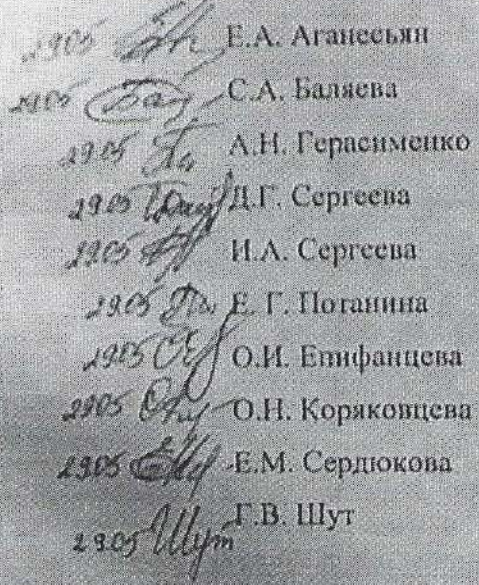 29.05 Е.А. Аганесьян
29.05 Баляева С.А. Баляева
29.05 А.Н. Герасименко
29.05 Д.Г. Сергеева
29.05 И.А. Сергеева
29.05 Е. Г. Потанина
29.05 О.И. Епифанцева
29.05 О.Н. Коряковцева
29.05 Е.М. Сердюкова
29.05 Шут Г.В. Шут